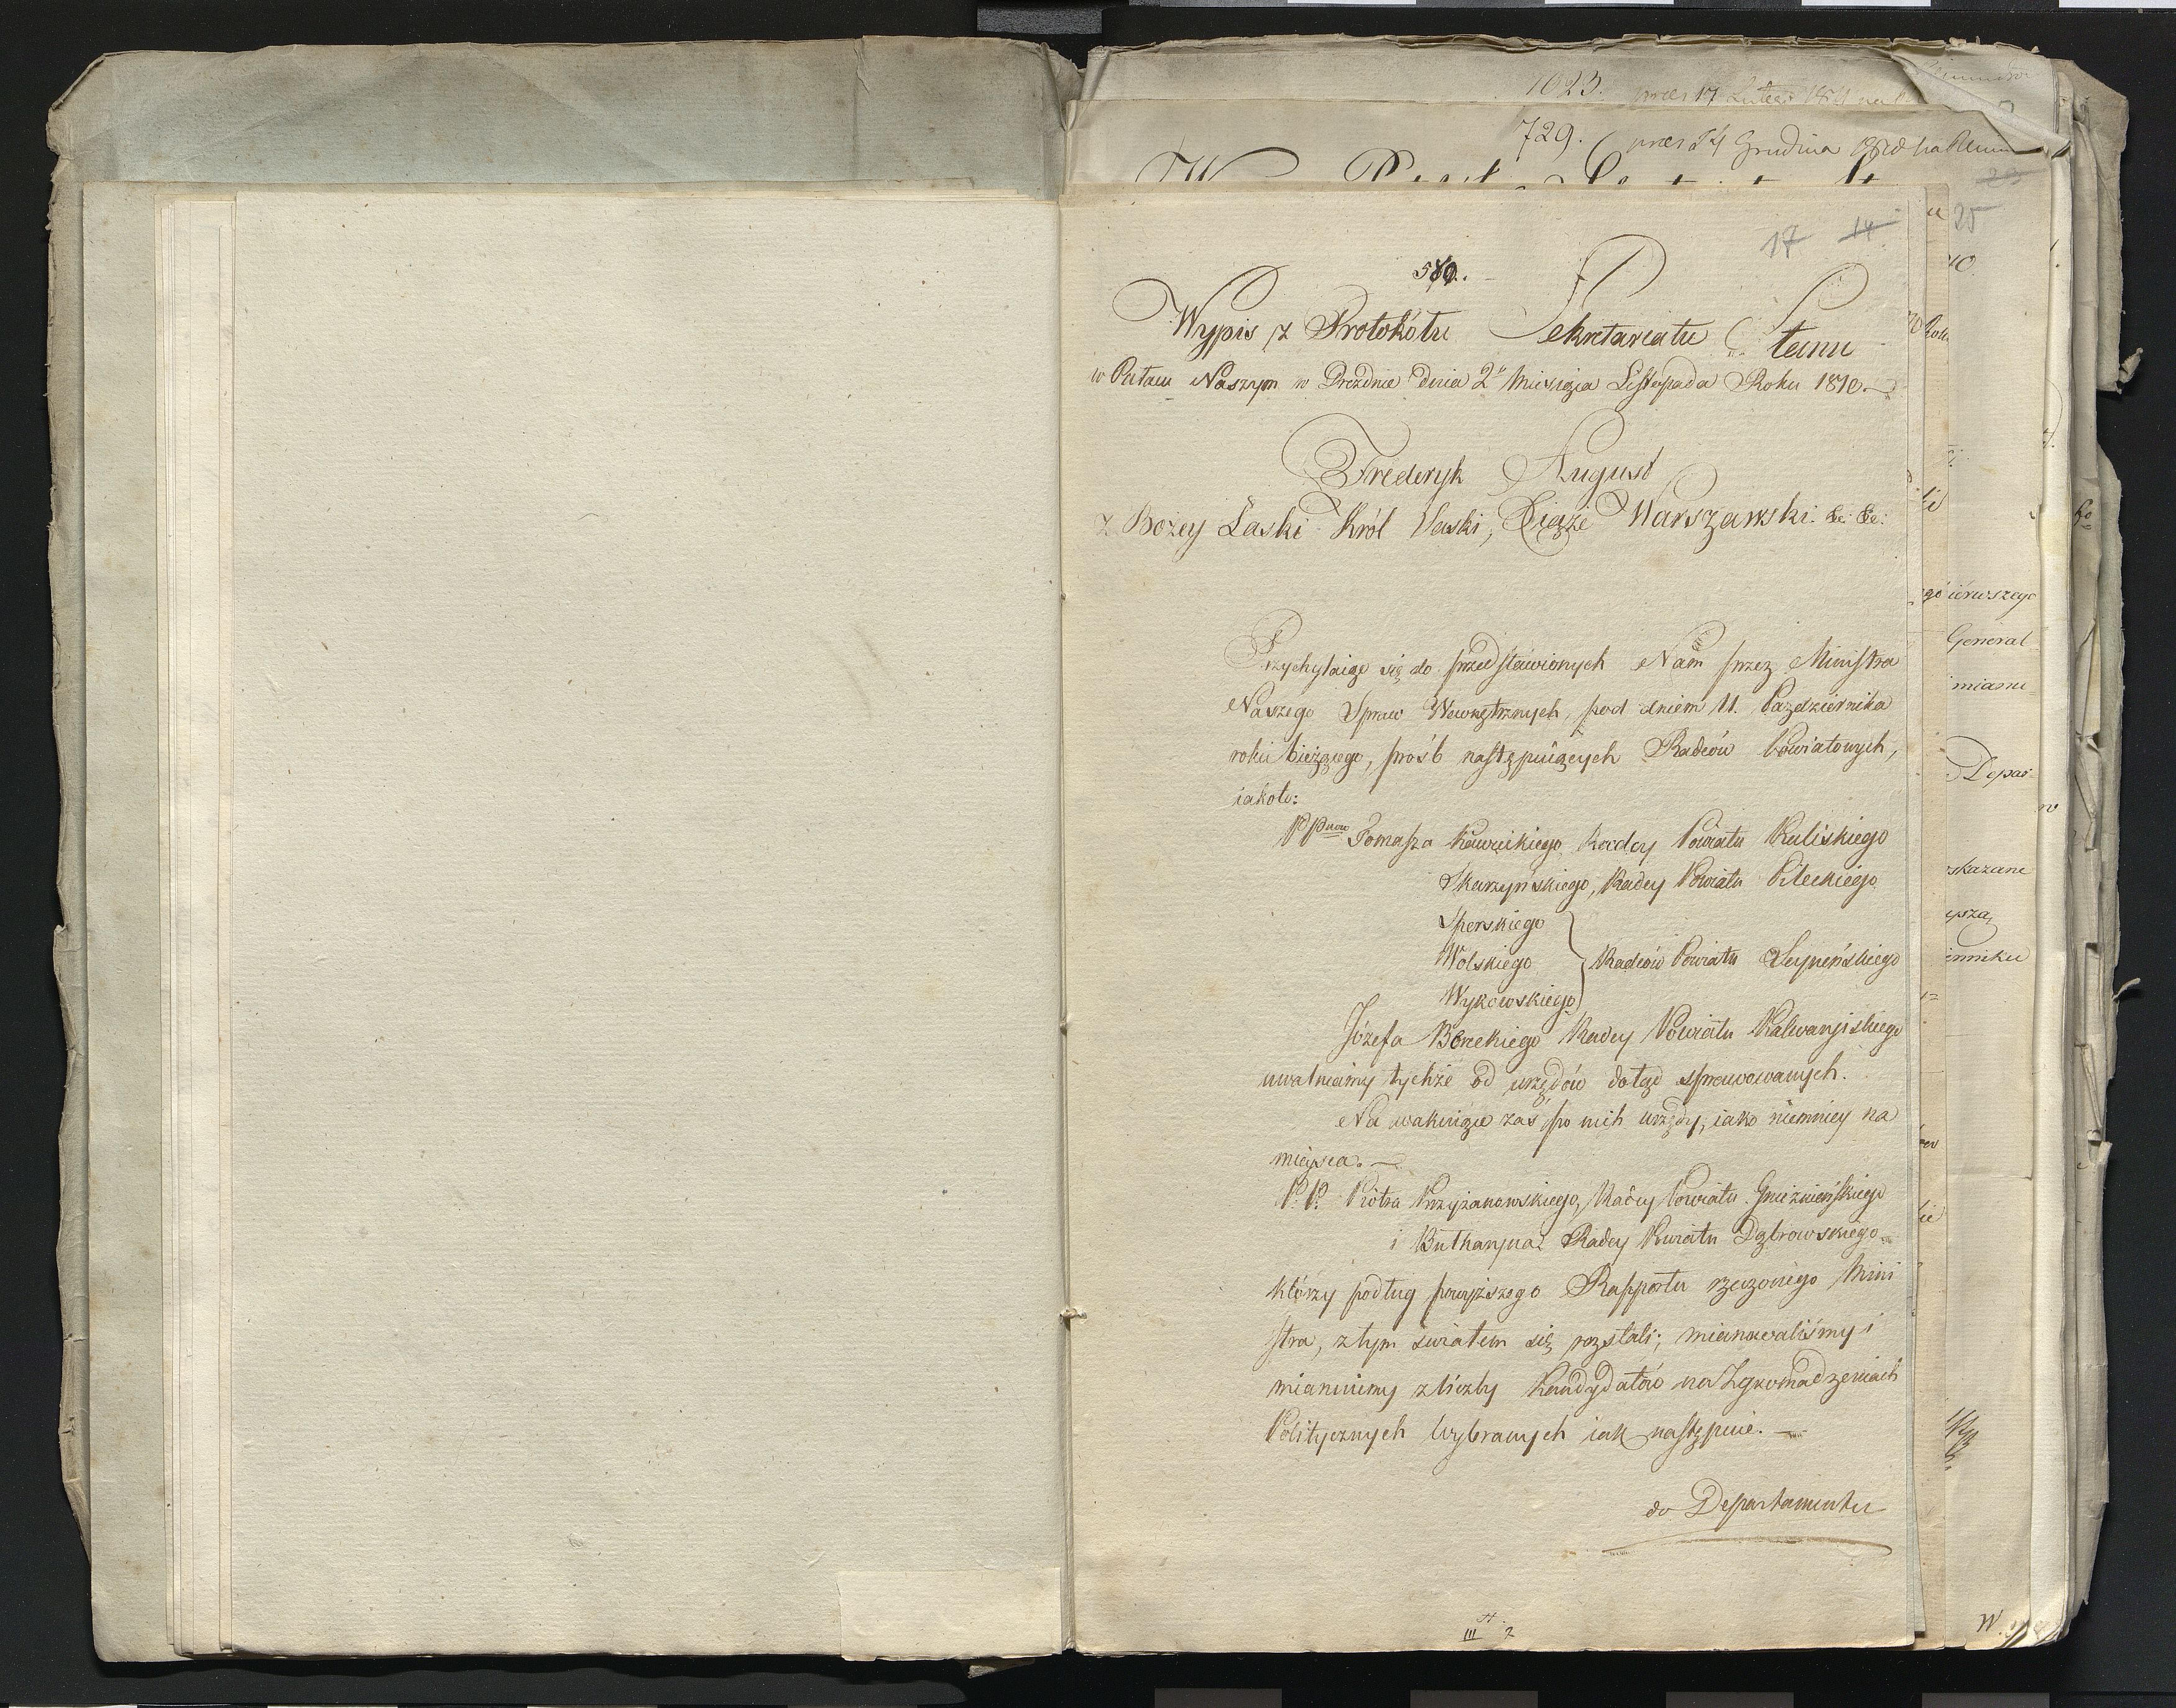 1023. pres 17 Lutego
729. pres 14 Grudnia
20
25
17 14
580.
Wypis z Protokółu Sekretariatu Stanu
w Pałacu Naszym w Dreźdnie dnia 2º Miesiąca Listopada Roku 1810.
Fryderyk August
z Bożey Łaski Król Saski, Xiąże Warszawski &c: &c:
Przychylaiąc się do przedstawionych Nam przez Ministra
Naszego Spraw Wewnętrznych, pod dniem 11. Października
roku bieżącego, prośb następuiących Radców Powiatowych,
iakoto:
PPnow Tomasza Kawieckiego Radcy Powiatu Kaliskiego
Skarzyńskiego, Radcy Powiatu Pileckiego
Sperskiego
Wolskiego Radców Powiatu Seyneńskiego
Wykowskiego
Józefa Boreckiego Radcy Powiatu Kalwaryiskiego
uwalniamy tychże od urzędów dotąd sprawowanych.
Na wakuiące zaś po nich urzędy, iako niemniey na
mieysca. —
P. P. Piotra Krzyżanowskiego, Radcy Powiatu Gnieznieńskiego
i Butharyna Radcy Powiatu Dąbrowskiego
którzy podług powyższego Rapportu rzeczonego Mini
stra, z tym światem się rozstali; mianowaliśmy i
mianuiemy z liczby Kandydatów na Zgromadzeniach
Politycznych wybranych iak następuie. —
do Departamentu
ierwszego
General
mianu
Depar
skazane
ysza
enniku
III 2
W.